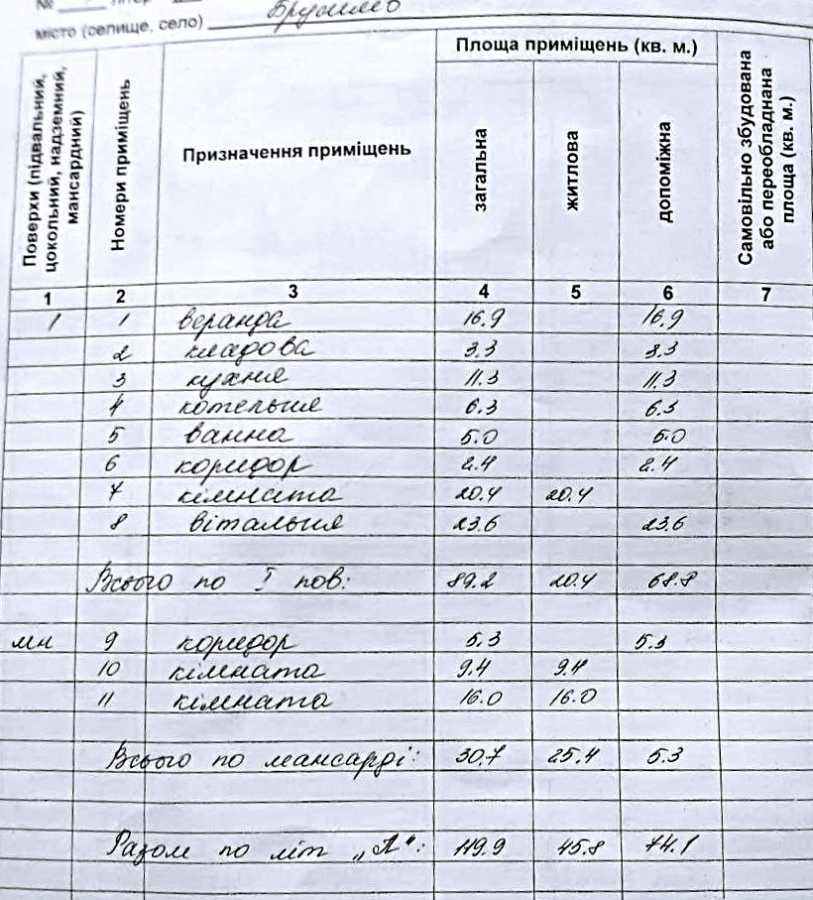 №
місто (селище, село) Брусилів
Поверхи (підвальний, цокольний, надземний, мансардний) Номери приміщень Призначення приміщень Площа приміщень (кв. м.) Самовільно збудована або переобладнана площа (кв. м.)
загальна житлова допоміжна
1 2 3 4 5 6 7
1 1 веранда 16.9 16.9
2 кладова 3.3 3.3
3 кухня 11.3 11.3
4 котельня 6.3 6.3
5 ванна 5.0 5.0
6 коридор 2.4 2.4
7 кімната 20.4 20.4
8 вітальня 23.6 23.6
Всього по I пов: 89.2 20.4 68.8
мн 9 коридор 5.3 5.3
10 кімната 9.4 9.4
11 кімната 16.0 16.0
Всього по мансарді: 30.7 25.4 5.3
Разом по літ „А“: 119.9 45.8 74.1